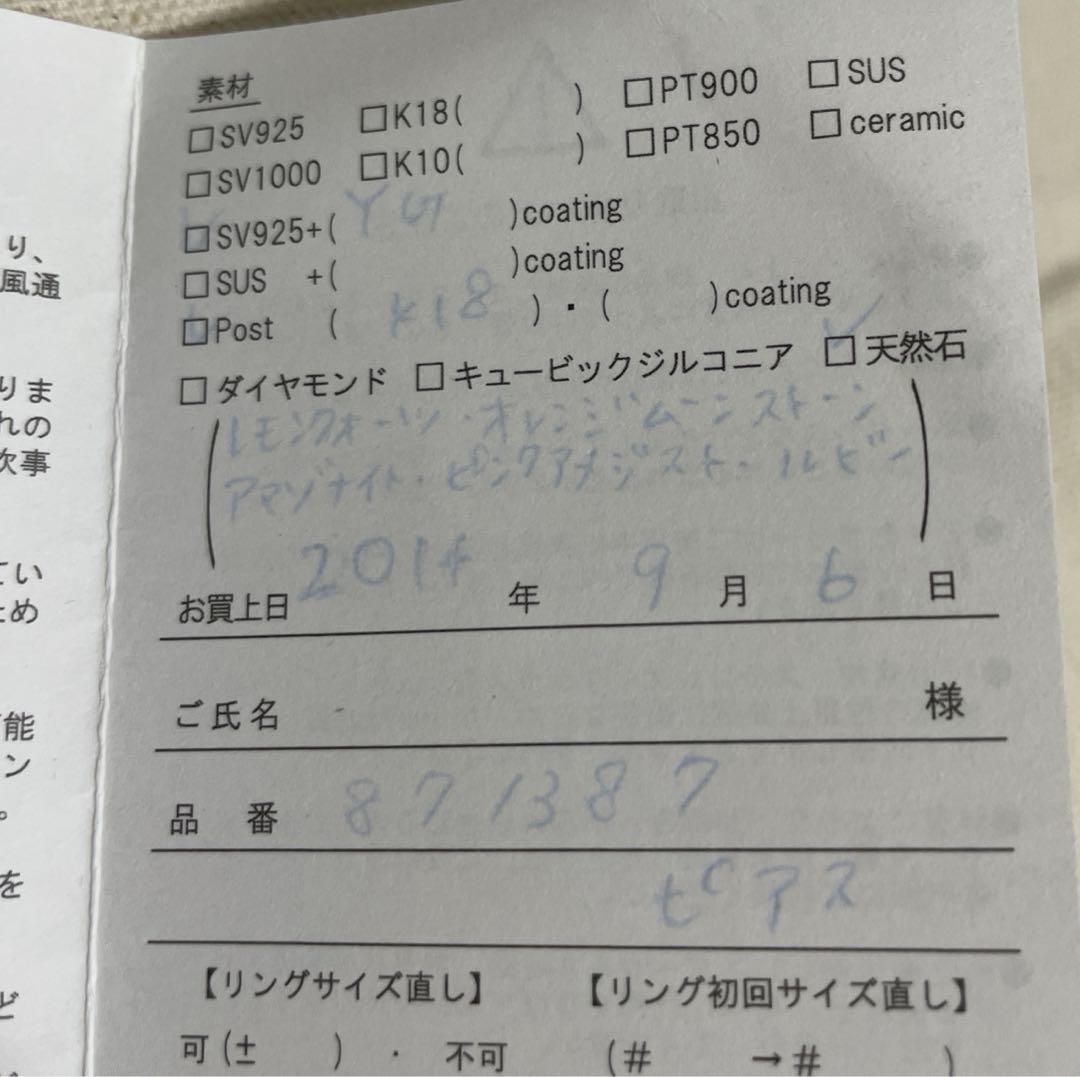 り、
風通
りま
れの
次事
てい
ため
可能
ン
。
を
ど
素材
□SV925 □K18( ) □PT900 □SUS
□SV1000 □K10( ) □PT850 □ceramic
□SV925+( YG )coating
□SUS +( )coating
□Post ( K18 )・( )coating
□ダイヤモンド □キュービックジルコニア ☑天然石
(レモンクォーツ・オレンジムーンストーン
アマゾナイト・ピンクアメジスト・ルビー)
お買上日 2014 年 9 月 6 日
ご氏名 様
品番 871387
ピアス
【リングサイズ直し】 【リング初回サイズ直し】
可(± )・不可 (# →# )